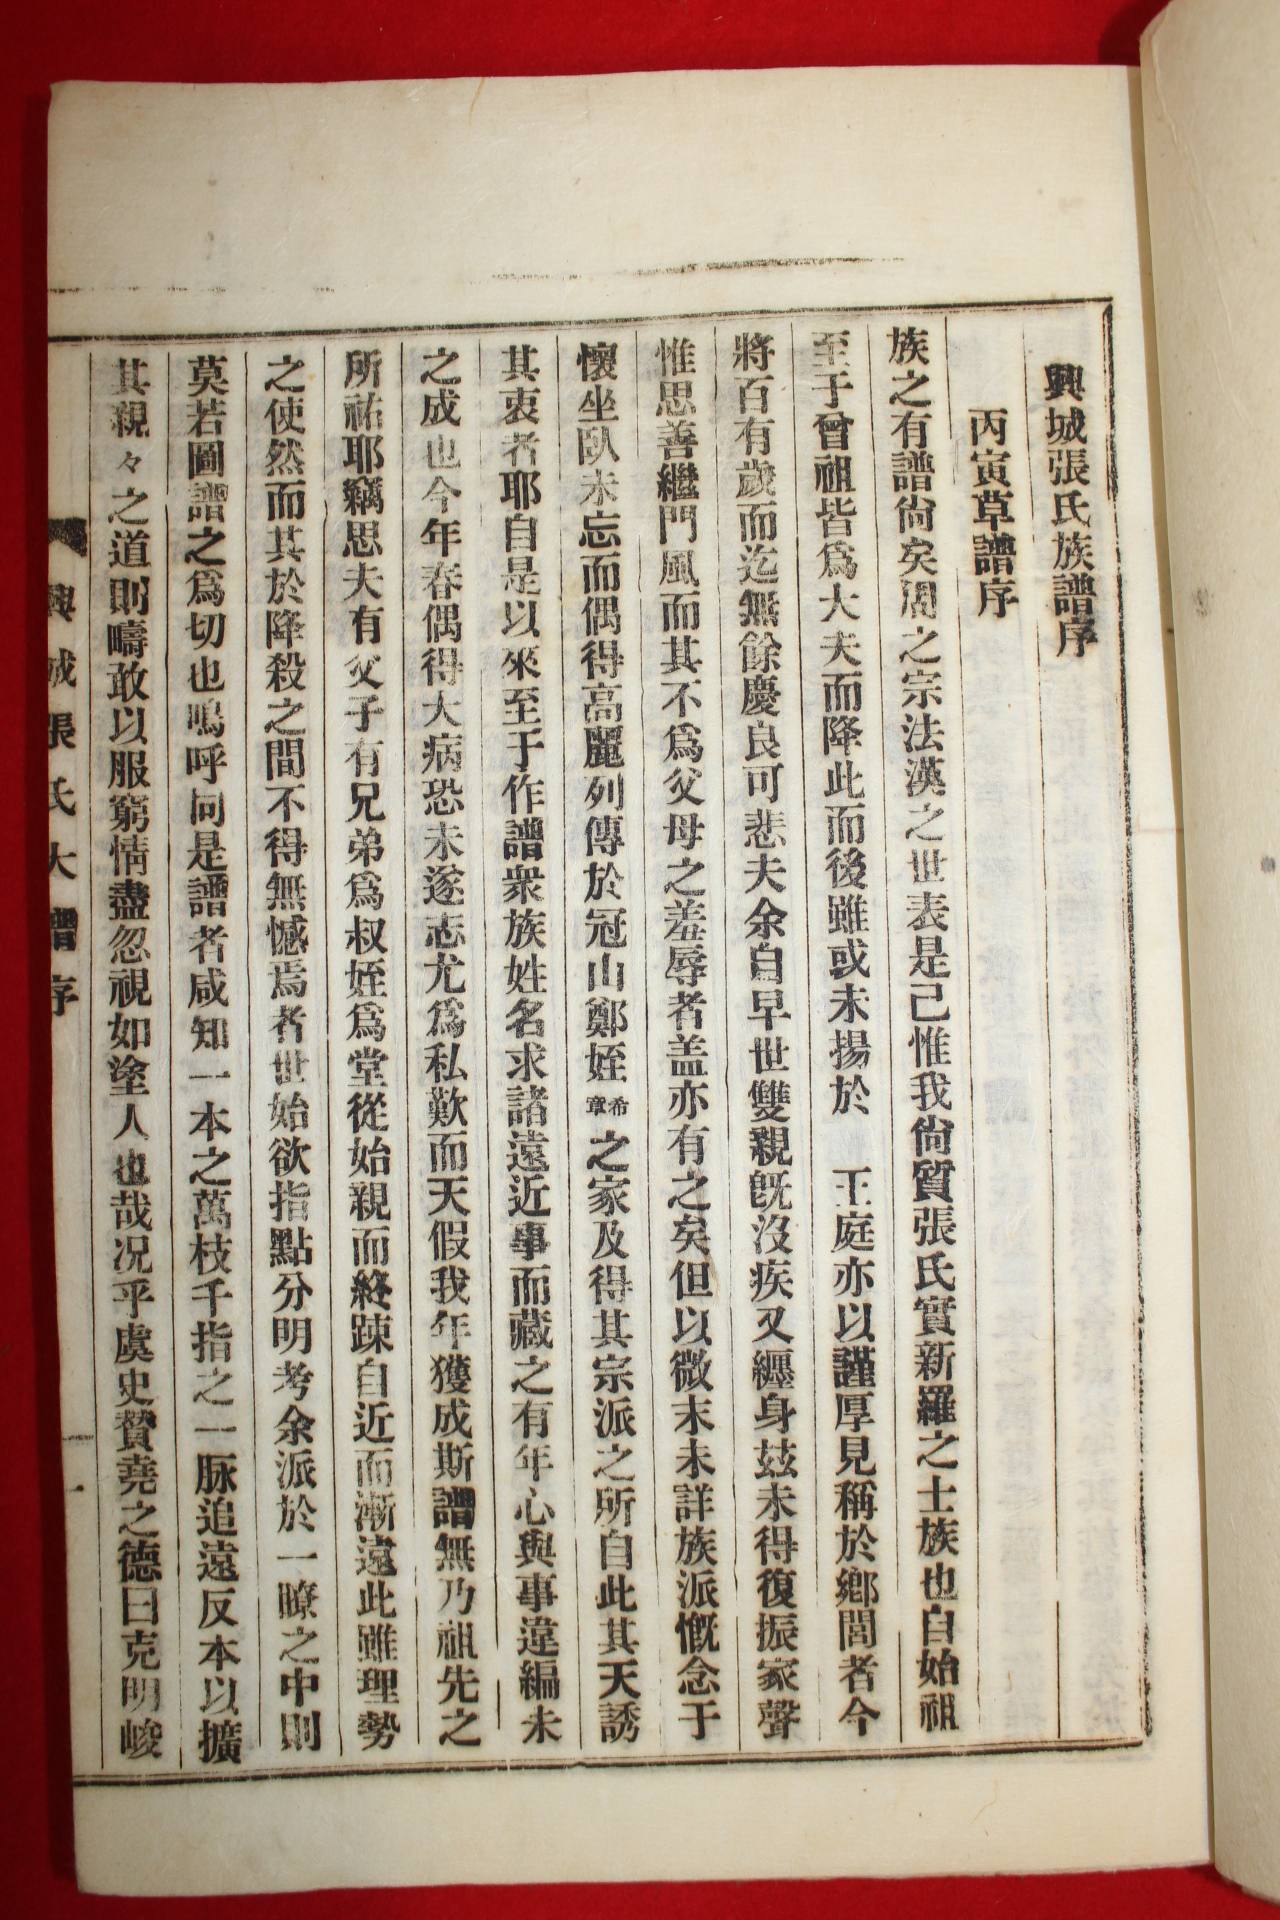 興城張氏族譜序
丙寅草譜序
族之有譜尙矣周之宗法漢之世表是已惟我尙質張氏實新羅之士族也自始祖
至于曾祖皆爲大夫而降此而後雖或未揚於 王庭亦以謹厚見稱於鄕閭者今
將百有歲而迄無餘慶良可悲夫余自早世雙親旣沒疾又纏身玆未得復振家聲
惟思善繼門風而其不爲父母之羞辱者盖亦有之矣但以微末未詳族派慨念于
懷坐臥未忘而偶得高麗列傳於冠山鄭姪希章之家及得其宗派之所自此其天誘
其衷者耶自是以來至于作譜衆族姓名求諸遠近事而藏之有年心與事違編未
之成也今年春偶得大病恐未遂志尤爲私歎而天假我年獲成斯譜無乃祖先之
所祐耶竊思夫有父子有兄弟爲叔姪爲堂從始親而終踈自近而漸遠此雖理勢
之使然而其於降殺之間不得無憾焉者世始欲指點分明考余派於一瞭之中則
莫若圖譜之爲切也嗚呼同是譜者咸知一本之萬枝千指之一脉追遠反本以擴
其親々之道則疇敢以服窮情盡忽視如塗人也哉况乎虞史贊堯之德曰克明峻
興城張氏大譜序 一